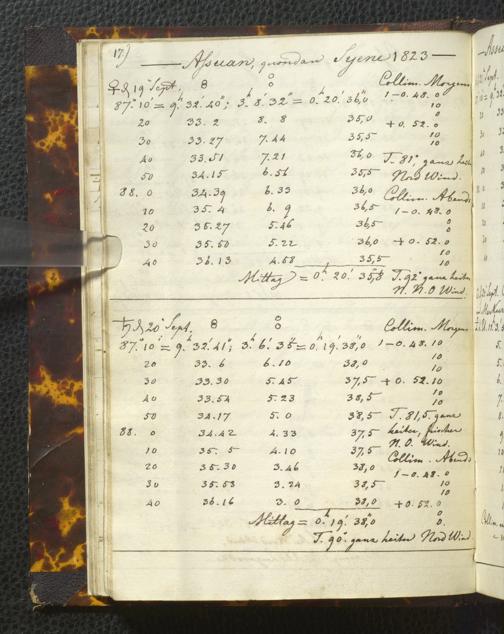 17.)
Assuan, quondam Syene 1823
♀ d 19 Sept. 8 Collim. Morgens
87° 10' = 9h 32' 40"; 3h 8' 32" = 0h 20' 36,0 1-0.48.0
20 33.2 8.8 35,0 10
30 33.27 7.44 35,5 +0.52.0
40 33.51 7.21 36,0 T. 81°, ganz heiter
50 34.15 6.56 35,5 Nord Wind.
88.0 34.39 6.33 36,0 Collim. Abends
10 35.4 6.9 36,5 1-0.48.0
20 35.27 5.46 36,5 0
30 35.50 5.22 36,0 +0.52.0
40 36.13 4.58 35,5 10
Mittag = 0h 20' 35,8 T. 92° ganz heiter
N.N.O Wind.
♄ d 20 Sept. 8 Collim. Morgens
87° 10' = 9h 32' 41"; 3h 6' 35" = 0h 19' 38,0 1-0.48.10
20 33.6 6.10 38,0 10
30 33.30 5.45 37,5 +0.52.10
40 33.54 5.23 38,5 10
50 34.17 5.0 38,5 T. 81,5. ganz
88.0 34.42 4.33 37,5 heiter, frischer
10 35.5 4.10 37,5 N.O. Wind.
Collim. Abends
20 35.30 3.46 38,0 1-0.48.0
30 35.53 3.24 38,5 10
40 36.16 3.0 38,0 +0.52.0
Mittag = 0h 19' 38,0 0
T. 90° ganz heiter Nord Wind.